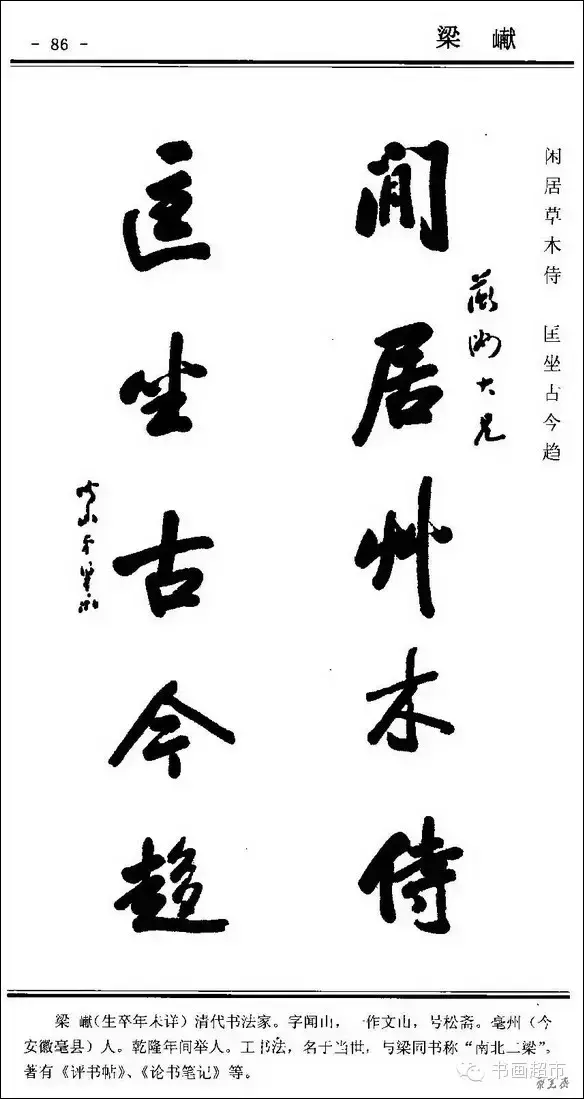 - 86 -
梁 巘
闲居草木侍 匡坐古今趋
閒居艸木侍
大兄
匡坐古今趍
梁 巘(生卒年未详)清代书法家。字闻山，一作文山，号松斋。亳州(今
安徽亳县)人。乾隆年间举人。工书法，名于当世，与梁同书称“南北二梁”。
著有《评书帖》、《论书笔记》等。
书画超市